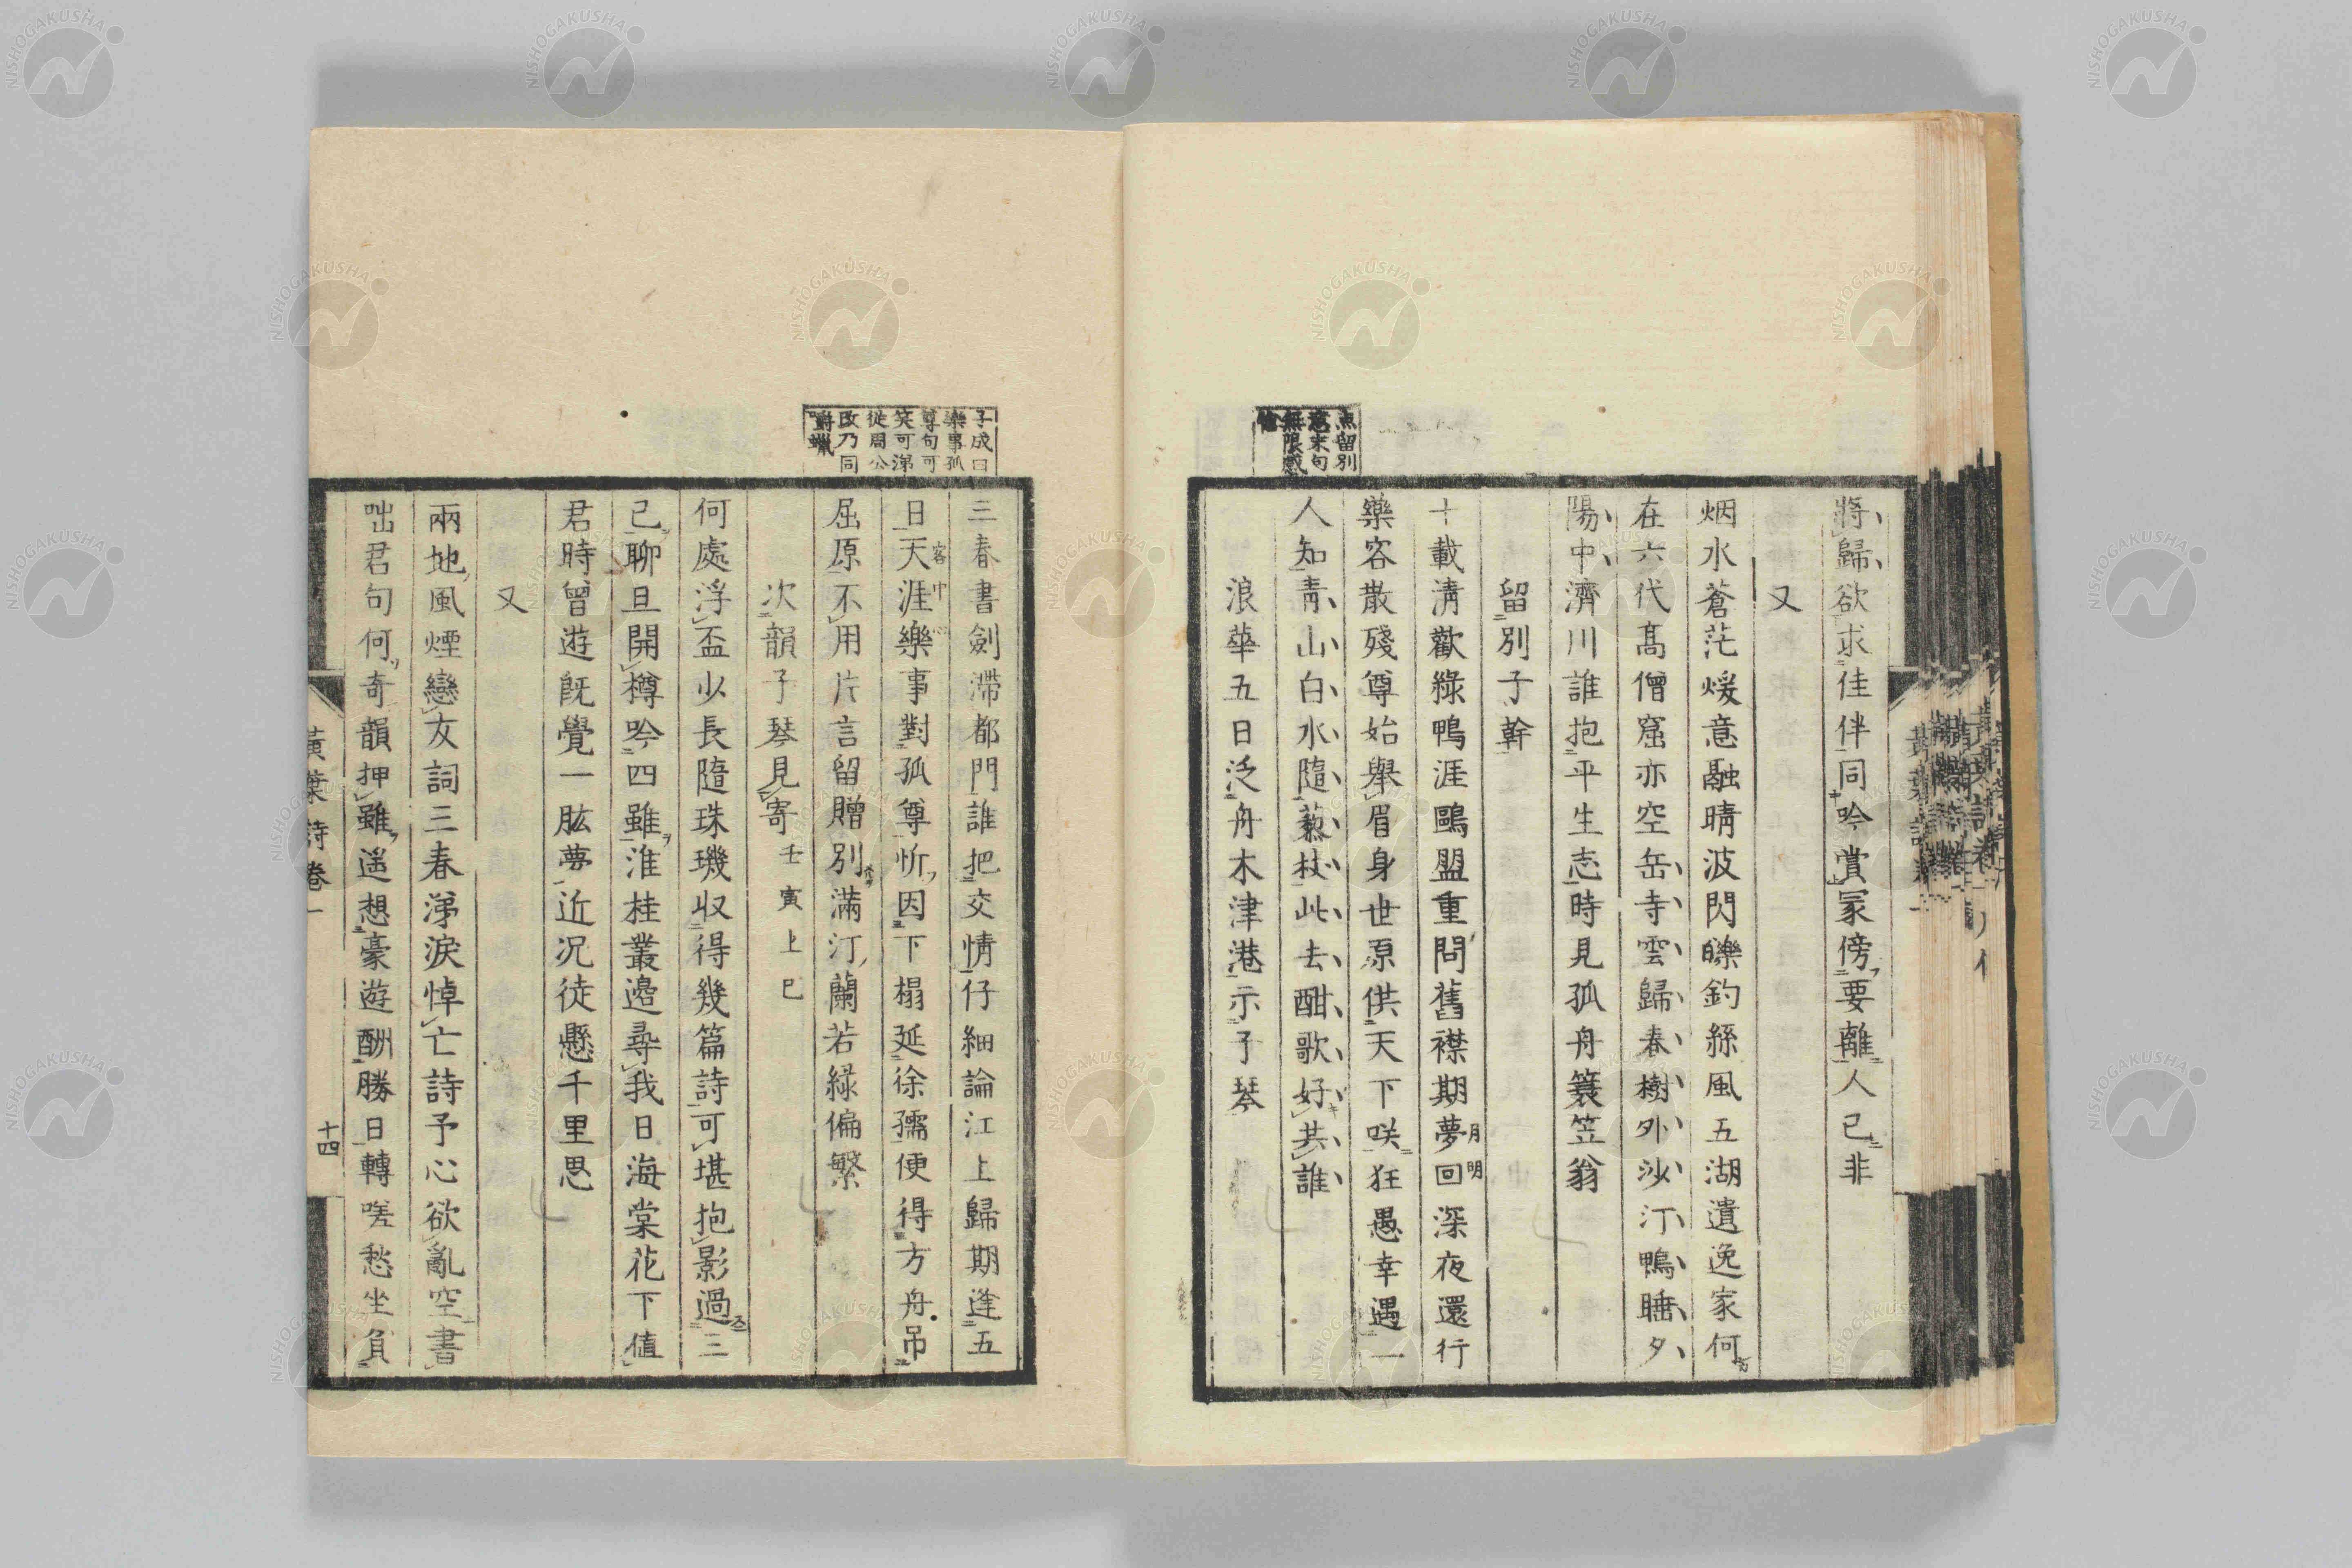 將歸欲求佳伴同吟賞家傍要離人已非
又
烟水蒼茫煖意融晴波閃鑠釣絲風五湖遺逸家何
在六代高僧窟亦空岳寺雲歸春樹外沙汀鴨睡夕
陽中濟川誰抱平生志時見孤舟簑笠翁
留別子幹
十載淸歡綠鴨涯鷗盟重問舊襟期夢回深夜還行
月明
藥容散殘尊始擧眉身世原供天下咲狂愚幸遇一
人知靑山白水隨藜杖此去酣歌好共誰
浪華五日泛舟木津港示子琴
点留別
意末句
無限感
三春書劍滯都門誰把交情仔細論江上歸期逢五
日天涯樂事對孤尊忻因下榻延徐孺便得方舟吊
客中
屈原不用片言留贈別滿汀蘭若綠偏繁
次韻子琴見寄 壬寅上巳
何處浮盃少長隨珠璣収得幾篇詩可堪抱影過三
已聊且開樽吟四雖淮桂叢邊尋我日海棠花下値
君時曾遊旣覺一肱夢近况徒懸千里思
又
兩地風煙戀友詞三春涕淚悼亡詩予心欲亂空書
咄君句何奇韻押雖遥想豪遊酬勝日轉嗟愁坐負
子成曰
樂事孤
尊句可
笑可涕
從周公
改乃同
嚼蠟
黃葉詩卷一
十四
NISHOGAKUSHA